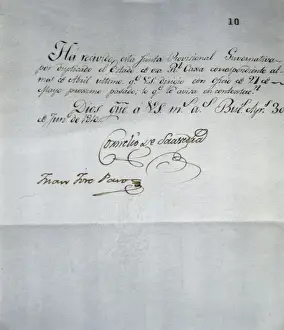 10
Ha recivido esta Junta Provisional Gubernativa
por duplicado el Estado de esa Rl. Casa correspondiente al
mes de Abril ultimo qe. VS. dirige con oficio de 21 de
Mayo proximo pasado, lo qe. le avisa de contestacn.
Dios gue. à VS. ms. as. Bus. Ayrs. 30
de Jun.o de 1810.
Cornelio de Saavedra
Juan Jose Paso